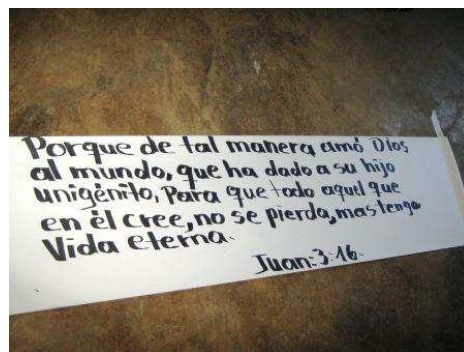 Porque de tal manera amó Dios
al mundo, que ha dado a su hijo
unigénito, Para que todo aquel que
en él cree, no se pierda, mas tenga
Vida eterna.
Juan: 3-16.